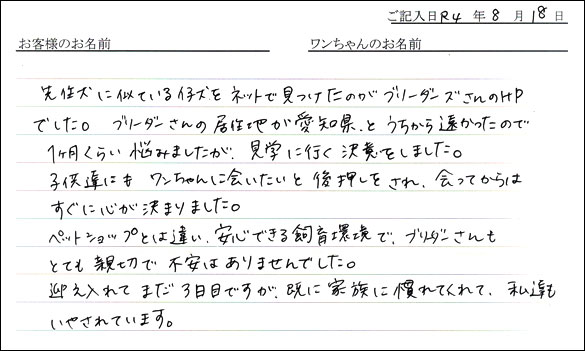 ご記入日R4 年 8 月 18 日
お客様のお名前 ワンちゃんのお名前
先住犬に似ている仔犬をネットで見つけたのがブリーダーズさんのHP
でした。 ブリーダーさんの居住地が愛知県、と うちから遠かったので
1ヶ月くらい 悩みましたが、見学に行く 決意をしました。
子供達にも ワンちゃんに会いたいと 後押しをされ、会ってからは
すぐに心が決まりました。
ペットショップとは違い、安心できる飼育環境で、ブリーダーさんも
とても 親切で 不安はありませんでした。
迎え入れて まだ 3日目ですが、既に 家族に 慣れてくれて、 私達も
いやされています。